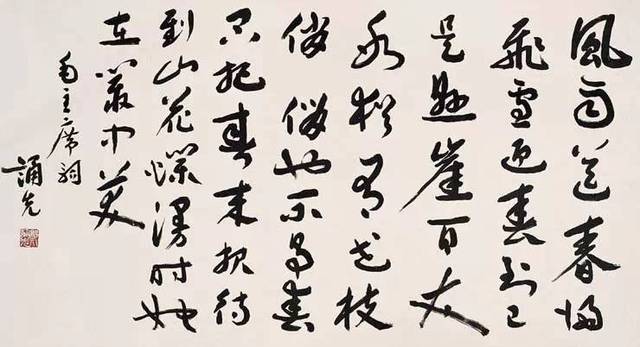 風雨送春歸
飛雪迎春到已
是懸崖百丈
冰猶有花枝
俏俏也不争春
只把春来报待
到山花爛漫时她
在叢中笑
毛主席詞
誦先